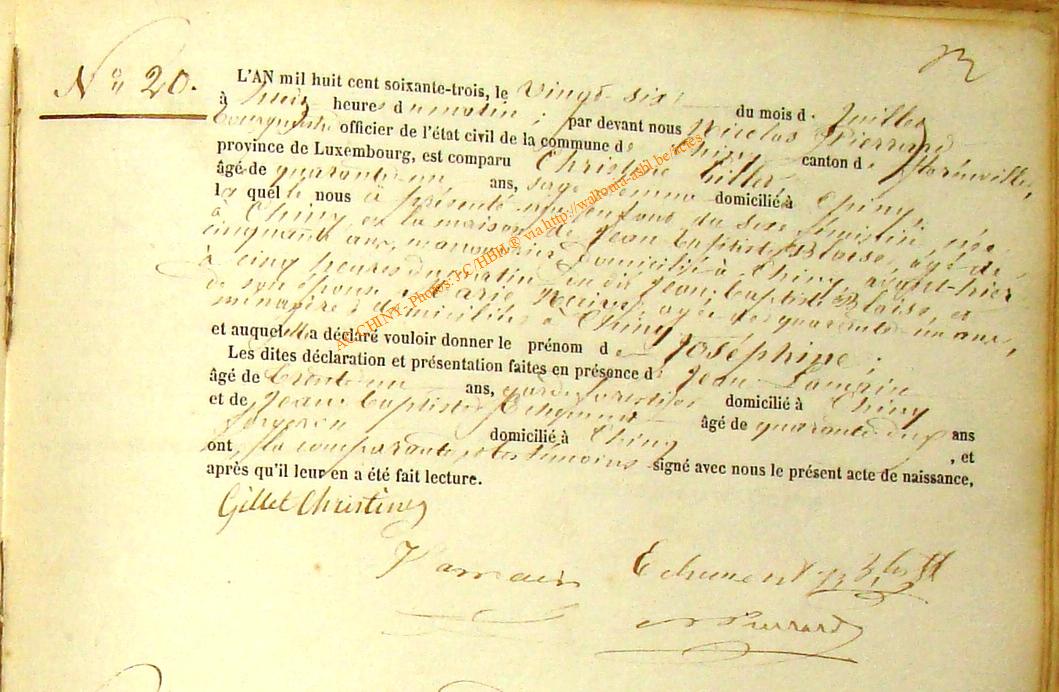 N° 20.
L'AN mil huit cent soixante-trois, le vingt six du mois de Juillet
à huit heures du matin ; par devant nous Nicolas Pierrard
Bourgmestre officier de l'état civil de la commune de Chiny canton de Florenville,
province de Luxembourg, est comparu Christine Gillet
âgé de quarante un ans, sage femme domicilié à Chiny,
la quélle nous à présenté un enfant du sexe féminin, née
à Chiny en la maison de Jean Baptiste Blaise, âgé de
cinquante ans, manouvrier, domicilié à Chiny, avant-hier
à cinq heures du matin, du dit Jean Baptiste Blaise, et
de son épouse Marie, agée de quarante un ans,
ménagère, domiciliés à Chiny
et auquel elle a déclaré vouloir donner le prénom de Joséphine ;
Les dites déclaration et présentation faites en présence de Jean
âgé de trente un ans, garde forestier domicilié à Chiny
et de Jean Baptiste Echement âgé de quarante deux ans
forgeron domicilié à Chiny , et
ont, la comparante et les témoins signé avec nous le présent acte de naissance,
après qu'il leur en a été fait lecture.
Gillet Christine
Echement
Pierrard
AEA CHINY - Photos: J-C/HBH ® via http://wallonia-asbl.be/actes